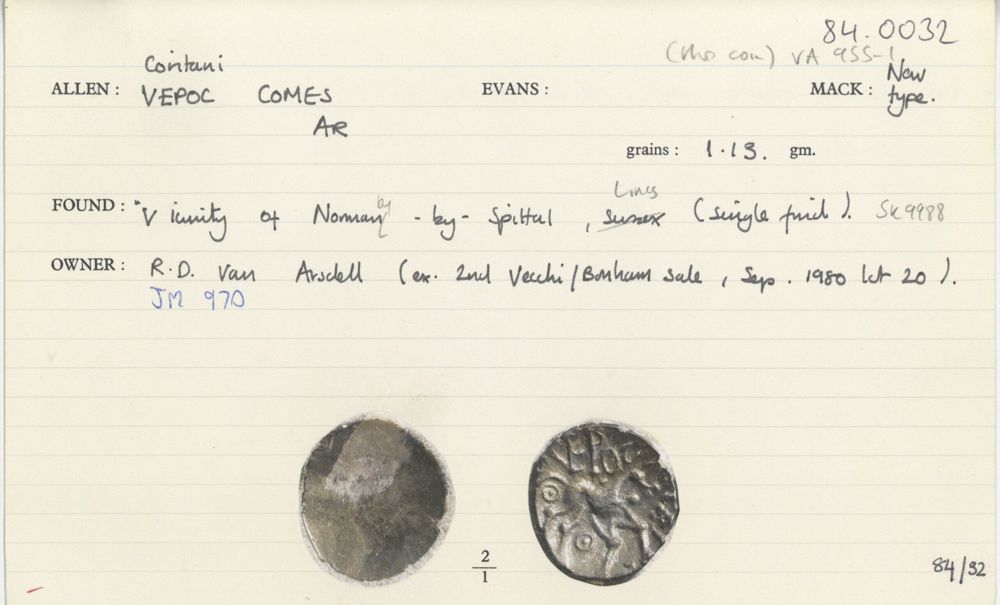 84.0032
(this coin) VA 955-1
Coritani
ALLEN : VEPOC COMES EVANS : MACK : New type.
AR
grains : 1.13. gm.
Lincs
FOUND : "Vicinity of Normanby - by - Spittal, Sussex (single find). SK9988
OWNER : R.D. Van Arsdell (ex. 2nd Vecchi/Bonham sale, Sep. 1980 lot 20).
JM 970
VEPOC
2
1
84/32